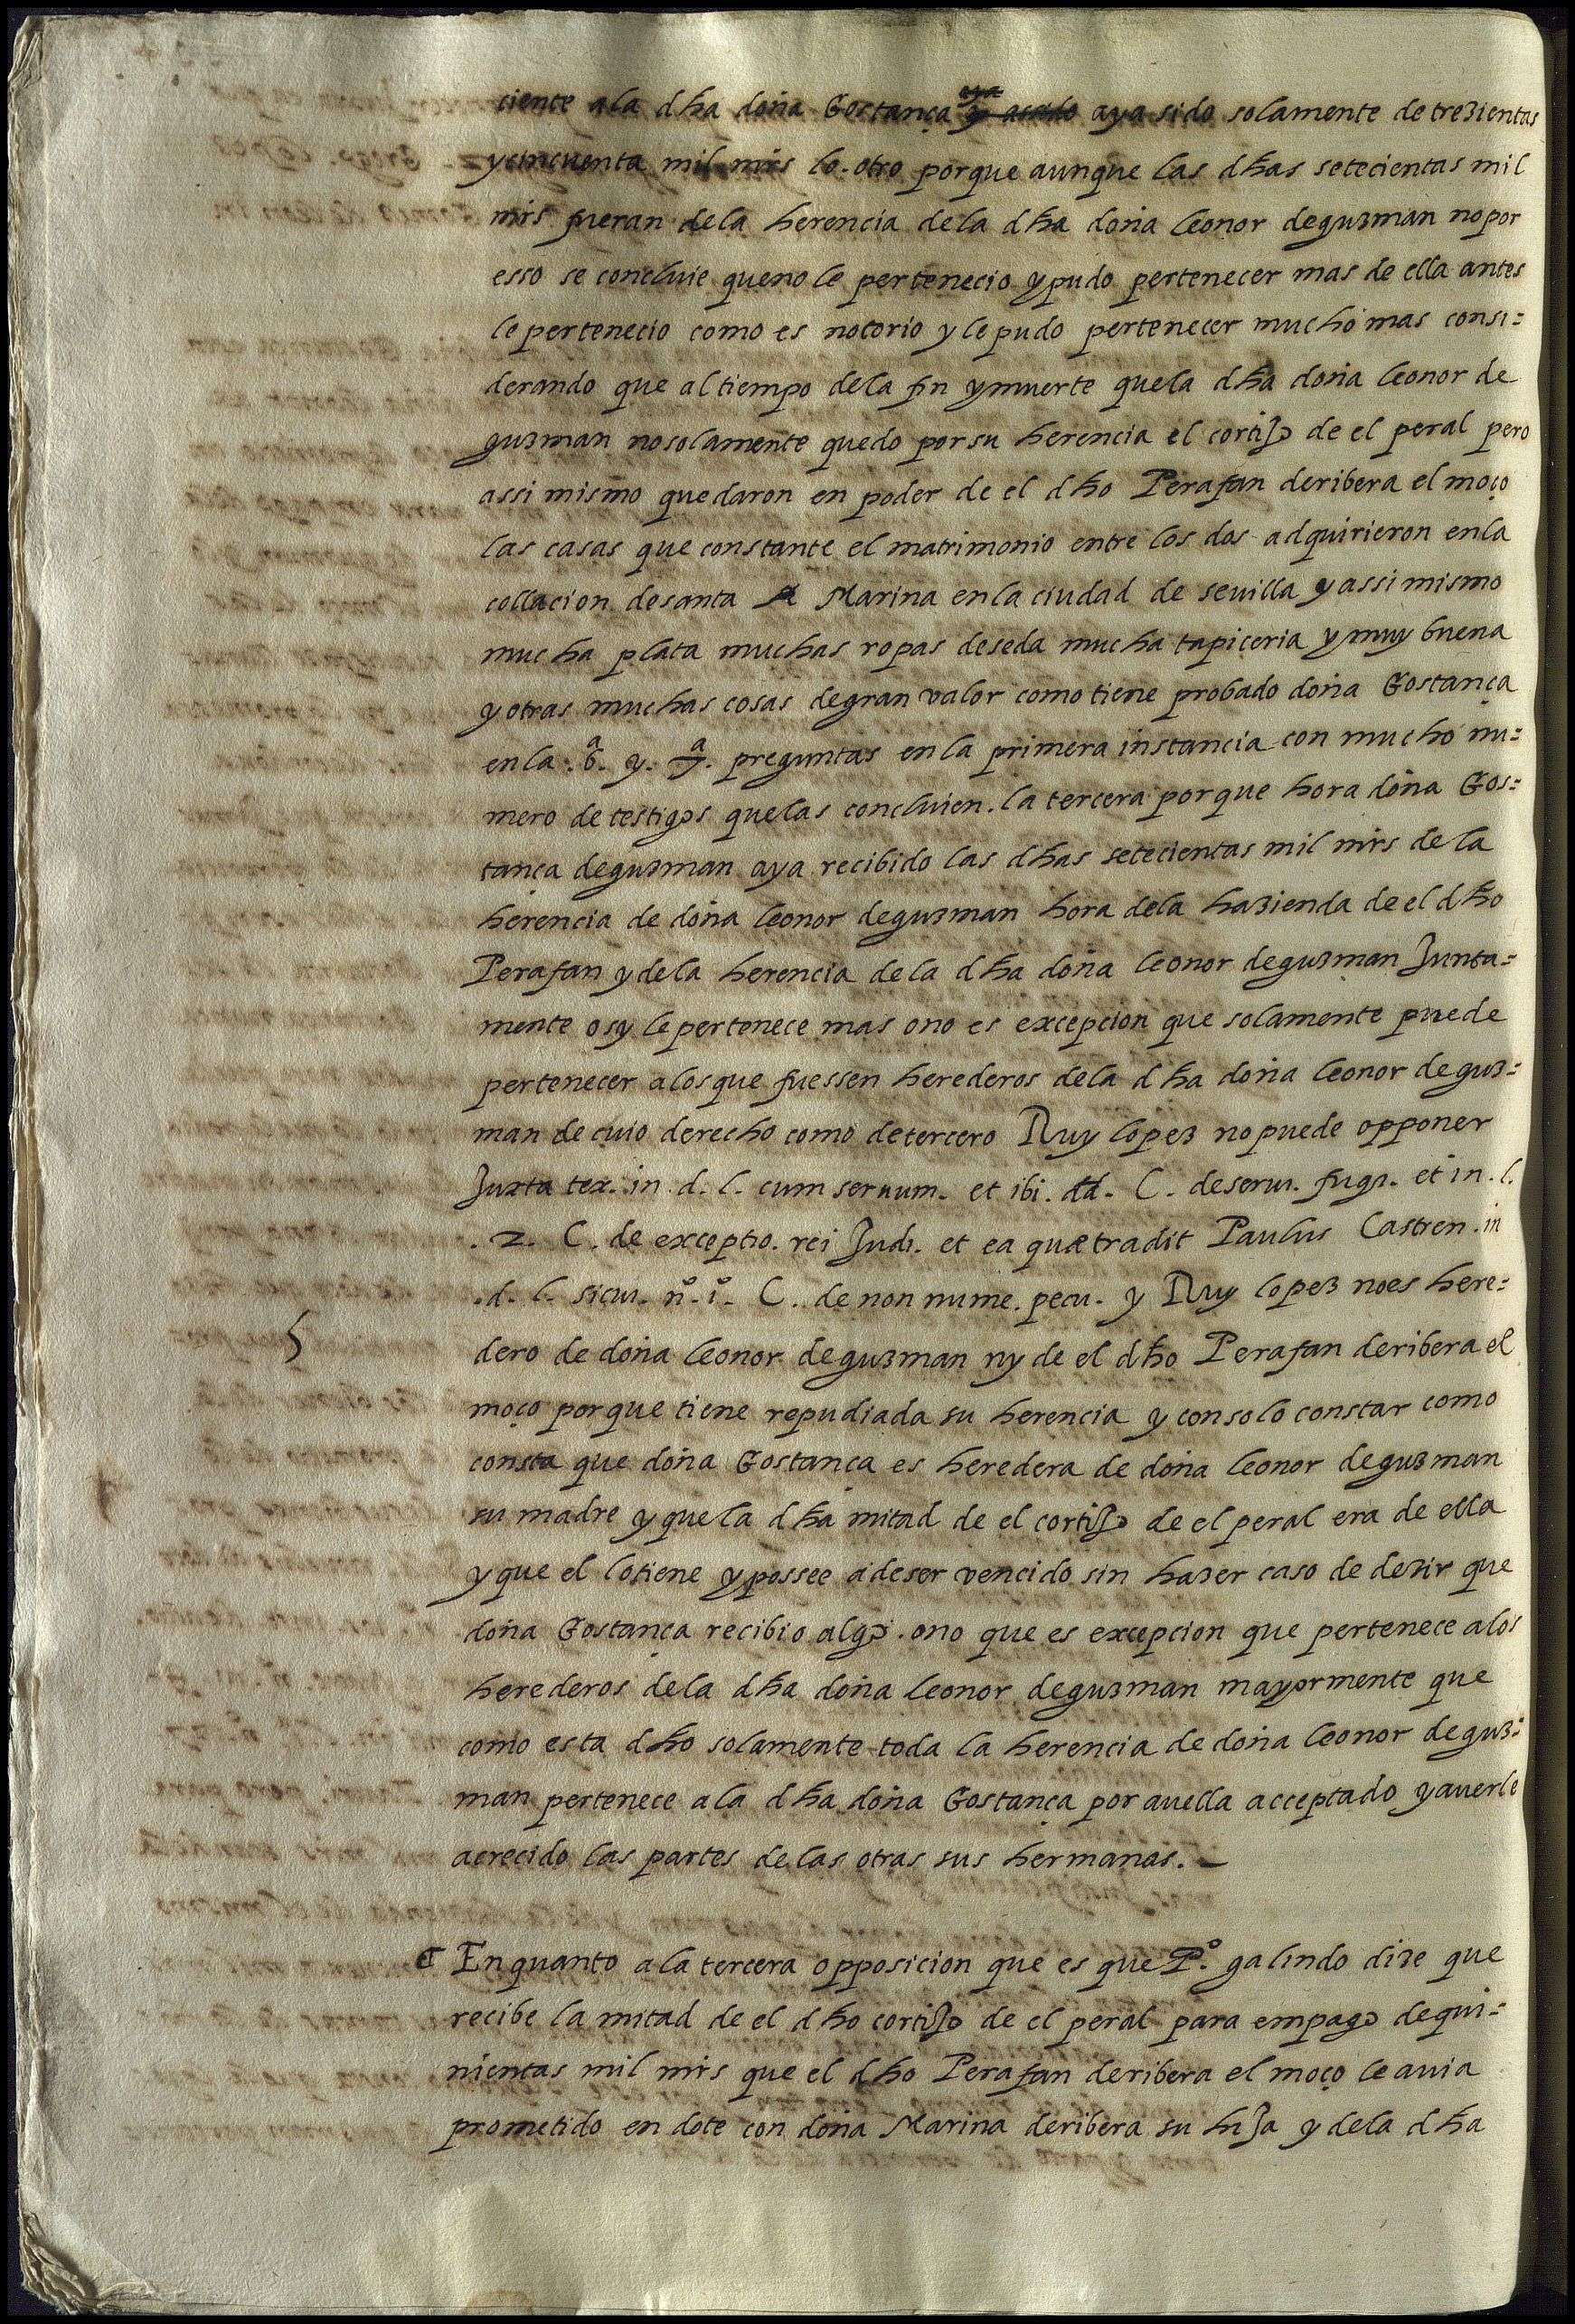 ciente a la dha doña Gostança aya y assido aya sido solamente de trezientas
y cincuenta mil mrs lo otro porque aunque las dhas setecientas mil
mrs fueran dela herencia dela dha doña leonor deguzman nopor
esso se concluie queno le pertenecio y pudo pertenecer mas de ella antes
le pertenecio como es notorio y le pudo pertenecer mucho mas consi=
derando que al tiempo dela fin y muerte quela dha doña leonor de
guzman nosolamente quedo porsu herencia el cortiJo de el peral pero
assi mismo quedaron en poder de el dho Perafan deribera el moço
las casas que constante el matrimonio entre los dos adquirieron enla
collacion desanta Marina enla ciudad de seuilla y assi mismo
mucha plata muchas ropas deseda mucha tapiceria y muy buena
y otras muchas cosas degran valor como tiene probado doña Gostança
enla .6.ª y .7.ª preguntas en la primera instancia con mucho nu=
mero de testigos quelas concluien. la tercera porque hora doña Gos=
tança deguzman aya recibido las dhas setecientas mil mrs de la
herencia de doña leonor deguzman hora dela hazienda de el dho
Perafan y dela herencia de la dha doña leonor deguzman Junta=
mente o sy le pertenece mas o no es excepcion que solamente puede
pertenecer alosque fuessen herederos dela dha doña leonor deguz=
man de cuio derecho como detercero Ruy lopez nopuede opponer
Juxta tex. in. d. l. cum seruum. et ibi. dd. C. deserui. fugi. et in. l.
.2. C. de exceptio. rei Judi. et ea quæ tradit Paulus Castren. in
.d. l. sicui. nº. i. C. de non nume. pecu. y Ruy lopez noes here=
dero de doña leonor deguzman ny de el dho Perafan deribera el
moço porque tiene repudiada su herencia y consolo constar como
consta que doña Gostança es heredera de doña leonor deguzman
su madre y quela dha mitad de el cortiJo de el peral era de ella
y que el lotiene y possee a deser vencido sin hazer caso de dezir que
doña Gostança recibio algo. o no que es excepcion que pertenece alos
herederos dela dha doña leonor deguzman mayormente que
como esta dho solamente toda la herencia de doña leonor deguz=
man pertenece a la dha doña Gostança por auella acceptado y auerle
acrecido las partes delas otras sus hermanas.
En quanto a la tercera opposicion que es que Pº. galindo dize que
recibe la mitad de el dho cortiJo de el peral para empago dequi=
nientas mil mrs que el dho Perafan deribera el moço le auia
prometido en dote con doña Marina deribera su hiJa y dela dha